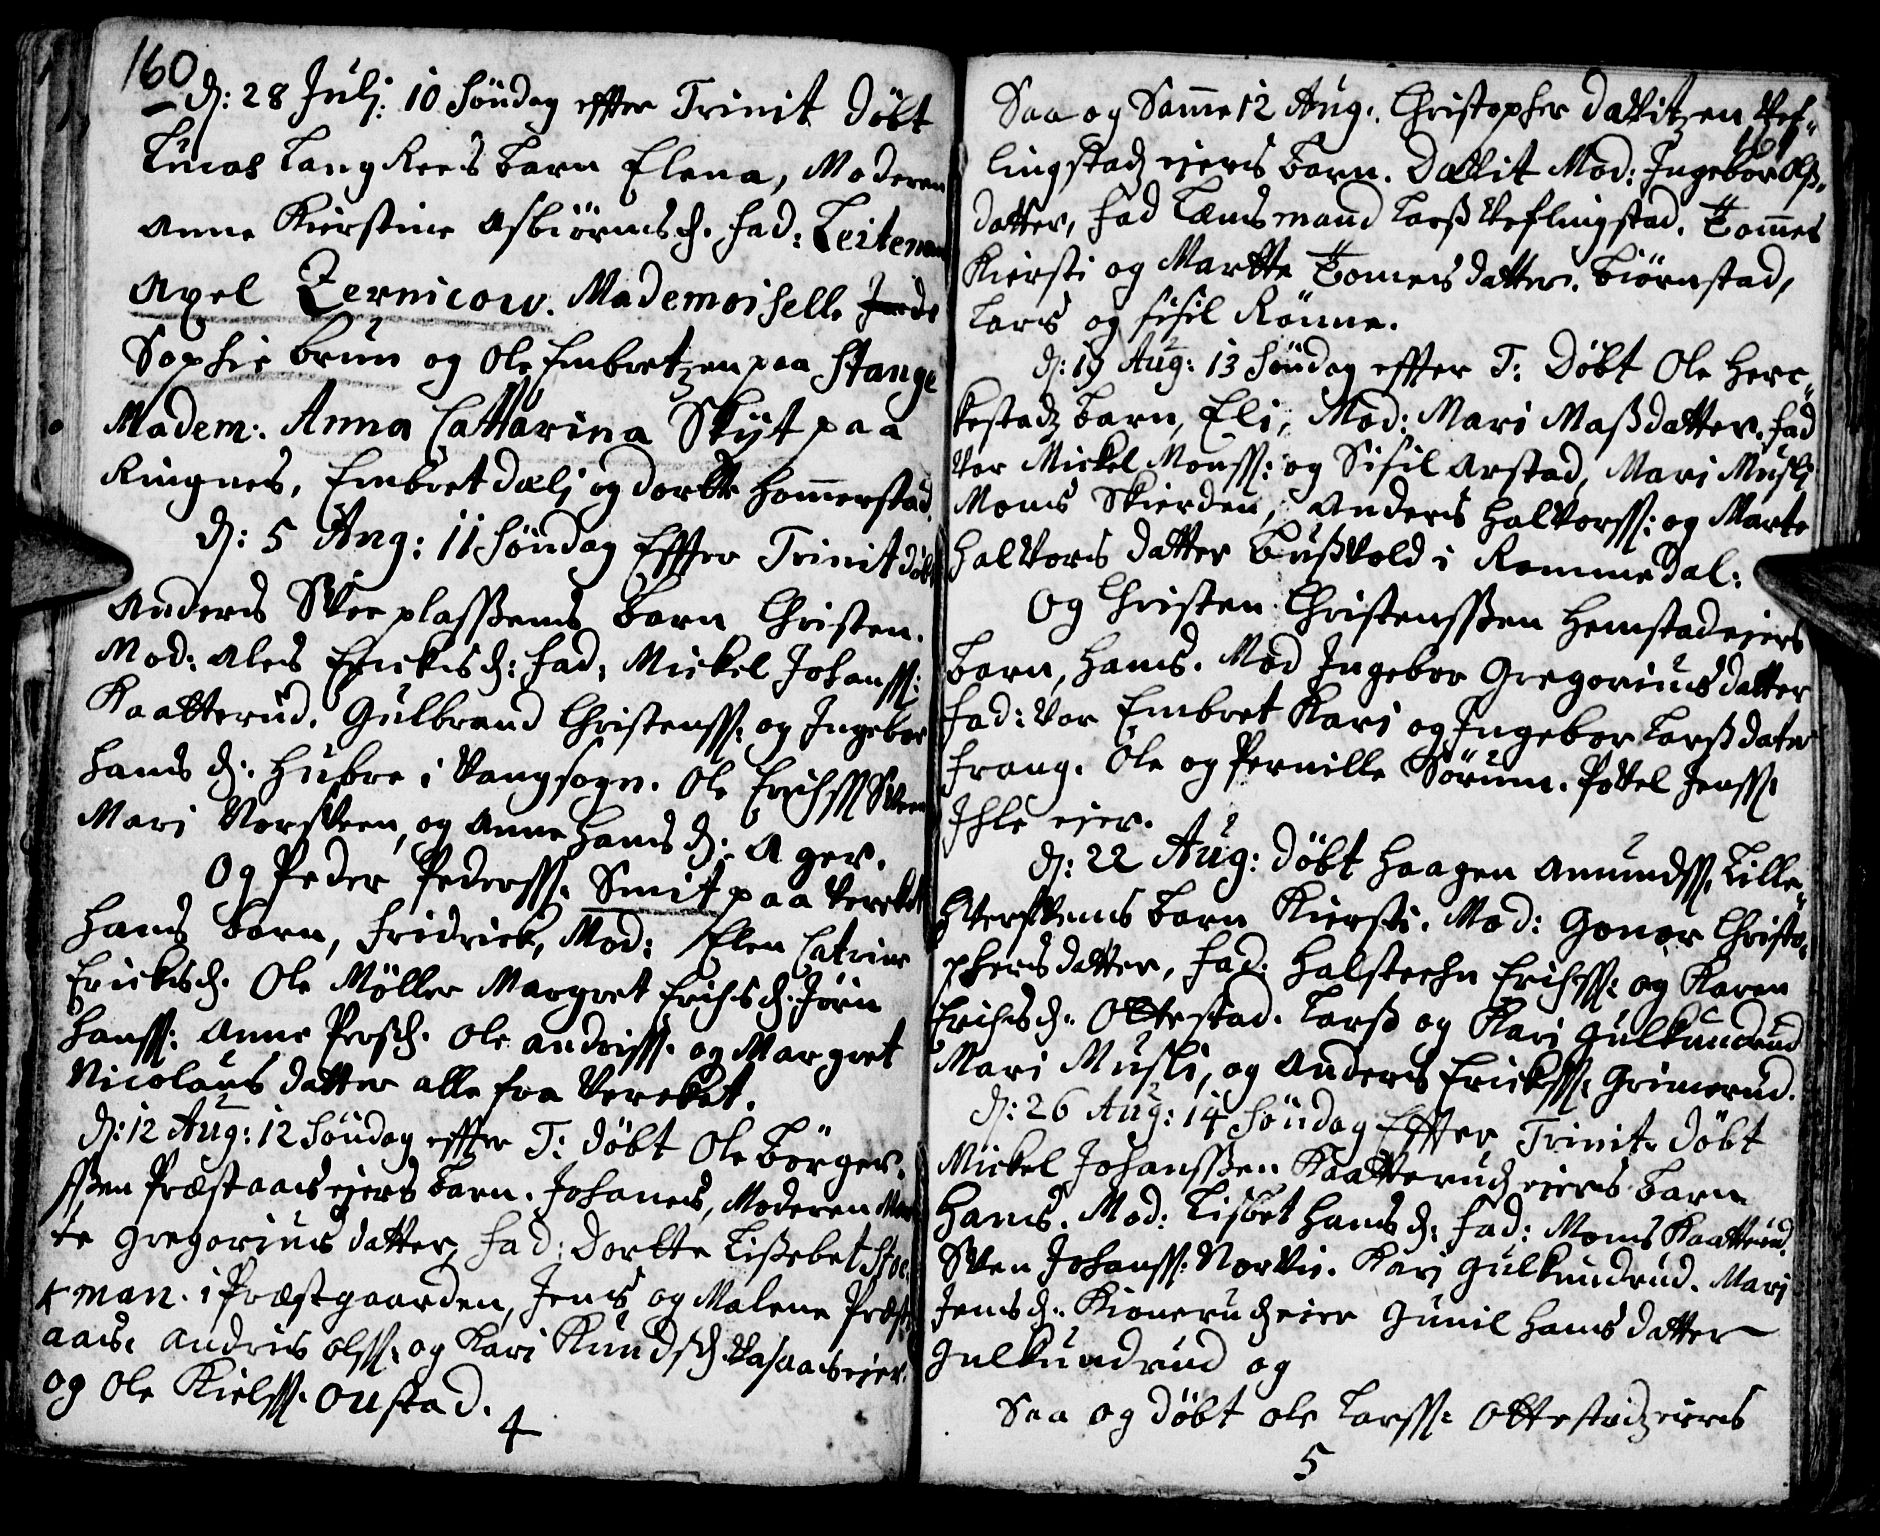 160
d: 28 Julj: 10 Søndag effter Trinit Døbt
Lucas Lang Rees barn Elena, Moderen
Anne Kierstine Asbiørnsd. fad: Leitenan
Axel Zernicow. Mademoiselle
Sophie brun og Ole Embretzen paa Stange
Madem: Anna Cattarina Skyt paa
Ringnes, Embret dælj og dortte Hommerstad.
d: 5 Aug: 11 Søndag Effter Trinit døbt
Anders Skee plassens barn Christen.
Mod: Ales Erichsd: fad: Mickel Johanss:
Kaatterud. Gulbrand Christenss: og Ingebor
Hans d: Hubre i Vangsogn. Ole Erichss
Mari Norsveen, og Anne Hans d: Ager.
Og Peder Pederss. Smit paa Verket
Hans barn, Fridrick, Mod: Elen Catrine
Ericksd. Ole Møller Margret Erichsd. Jørn
Hanss: Anne Persd. Ole andriss. og Margret
Nicolaus datter alle fra Vercket.
d: 12 Aug: 12 Søndag effter T: døbt Ole Børger-
ssen Præstaas ejers barn. Johanes, Moderen Mar
te Gregorius datter, fad: Dortte Lissebet Stoc
kman. i Præstgaarden, Jens og Malene Præst
aas. Andris olss. og Kari Knudsd. Aasaasejer.
og Ole Kielss. Oustad.
4
Saa og Samme 12 Aug:. Christopher Davitzen Vef-
161
lingstad ejers barn. Davit Mod: Ingebor Ols-
datter, fad Lensmand Lars Veflingstad. Tommes
Kiersti og Martte Tomes datter. Biørnstad,
Lars og sisil Rønne.
d: 19 Aug: 13 Søndag effter T: Døbt Ole Her-
kestad barn, Eli, Mod: Mari Mass datter. fad
var Mickel Monss: og Sisil Arstad, Mari Musli
Mons Skierden, Anders Halvorss: og Marte
Halvors datter Bussvold i Rommedal:
Og Christen Christenssen Hemstad ejers
barn, Hans. Mod Ingebor Gregorius datter
fad: var Embret Kari og Ingebor Lars dater
frang. Ole og Pernille Sørum. Povel Jenss:
Ihle ejer.
d: 22 Aug: døbt Haagen Amundss. Lille-
barn Kiersti. Mod: Gonor Christo-
phersdatter, fad: Halsteehn Erichss: og Karen
Erichsd: Ottestad. Lars og Kari Gulkundrud
Mari Musli, og Anders Erickss: Grimerud.
d: 26 Aug: 14 Søndag Effter Trinit. Døbt
Mickel Johanssen Kaatterud ejers barn
Hans. Mod: Lisbet Hans d: fad: Mons Kaatterud.
Sven Johanss: Norvie. Kari Gulkundrud. Mari
Jensd: Kionerud ejer Gunil Hans datter
Gulkundrud og
Saa og døbt ole Larss: Ottestad ejers
5